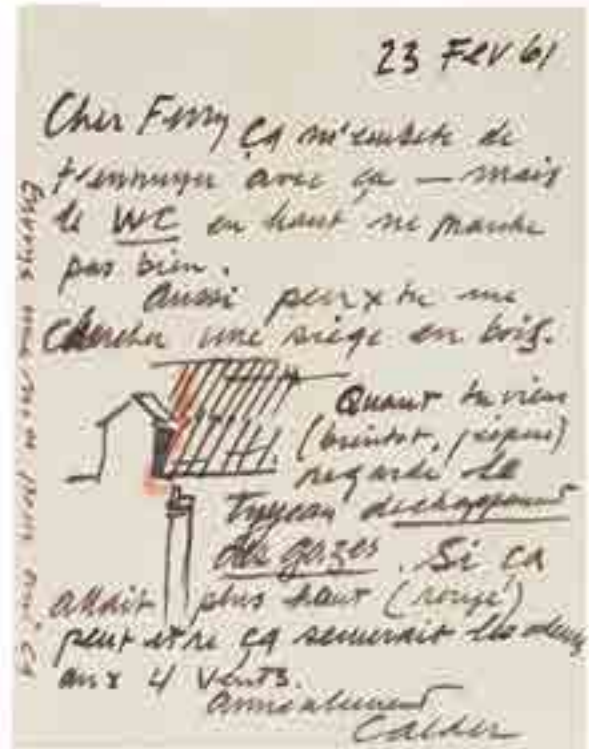 23 FEV 61
Cher Ferry ça m'embete de
t'ennuyer avec ça — mais
le WC en haut ne marche
pas bien.
Aussi peux tu me
chercher une siège en bois.
Quant tu viens
(bientot, j'espère)
regarde le
Tuyeau dechappement
des gazes. Si ça
allait plus haut (rouge)
peut etre ça semerait les odeurs
aux 4 vents.
Amicalement
Calder